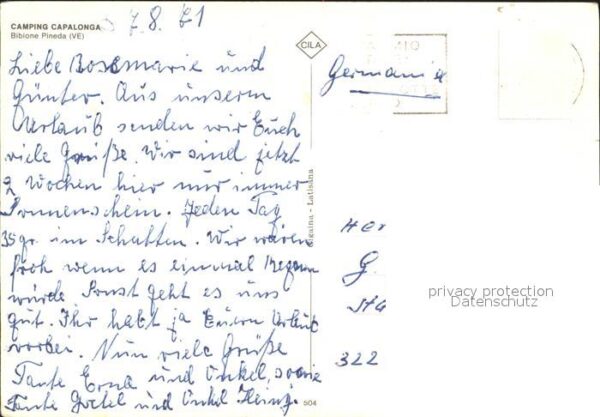 CAMPING CAPALONGA
Bibione Pineda (VE)
7.8.71
Liebe Rosemarie und
Günter. Aus unserm
Urlaub senden wir Euch
viele Grüße. Wir sind jetzt
2 Wochen hier nur immer
Sonnenschein. Jeden Tag
35 gr. im Schatten. Wir wären
froh wenn es einmal Regnen
würde. Sonst geht es uns
gut. Ihr habt ja Euern Urlaub
vorbei. Nun viele Grüße
Tante Erna und Onkel, sowie
Tante Gretel und Onkel Heinz.
CILA
Germania
Her
G.
322
privacy protection
Datenschutz
- Latisana
504